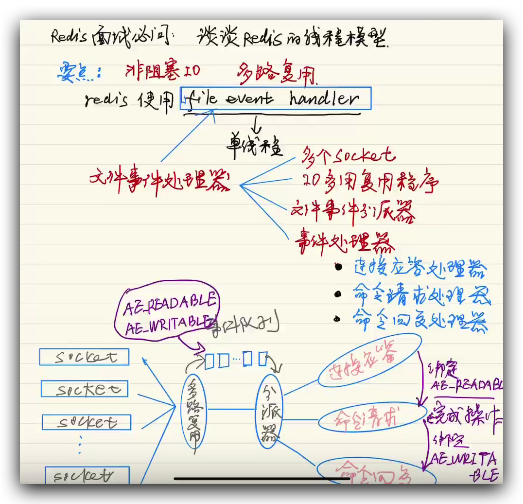 Redis面试必问: 谈谈Redis的线程模型
要点: 非阻塞IO 多路复用
redis 使用 file event handler
单线程
文件事件处理器
多个socket
IO多用复用程序
文件事件分派器
事件处理器
• 连接应答处理器
• 命令请求处理器
• 命令回复处理器
AE_READABLE
AE_WRITABLE
socket
socket
socket
socket
多路复用
分派器
连接应答
命令请求
命令回复
绑定
AE_READABLE
完成操作
绑定
AE_WRITA
BLE